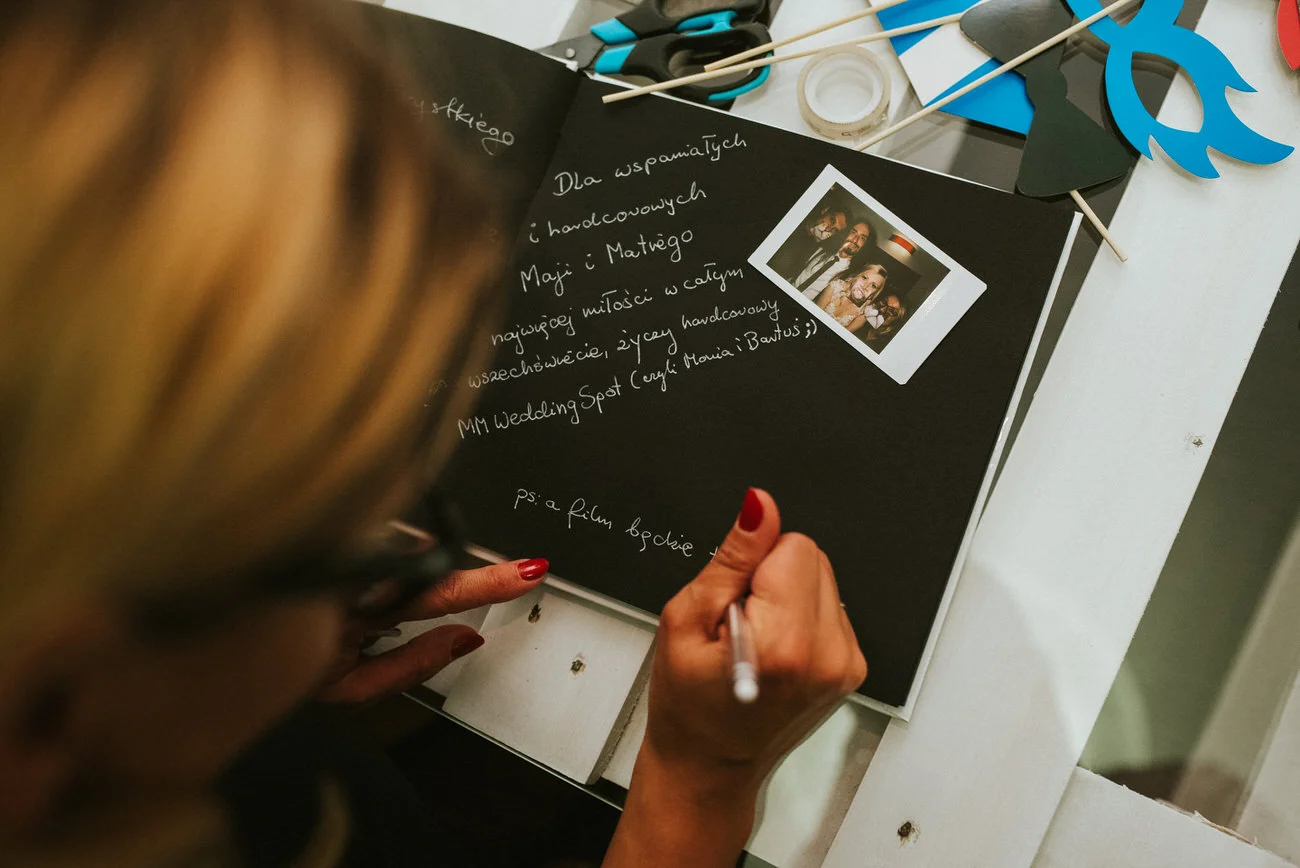 ystkiego
Dla wspaniałych
i hardcorowych
Maji i Matiego
najwięcej miłości w całym
wszechświecie, życzy hardcorowy
MM Wedding Spot (czyli Monia i Bartuś ;)
ps: a film będzie